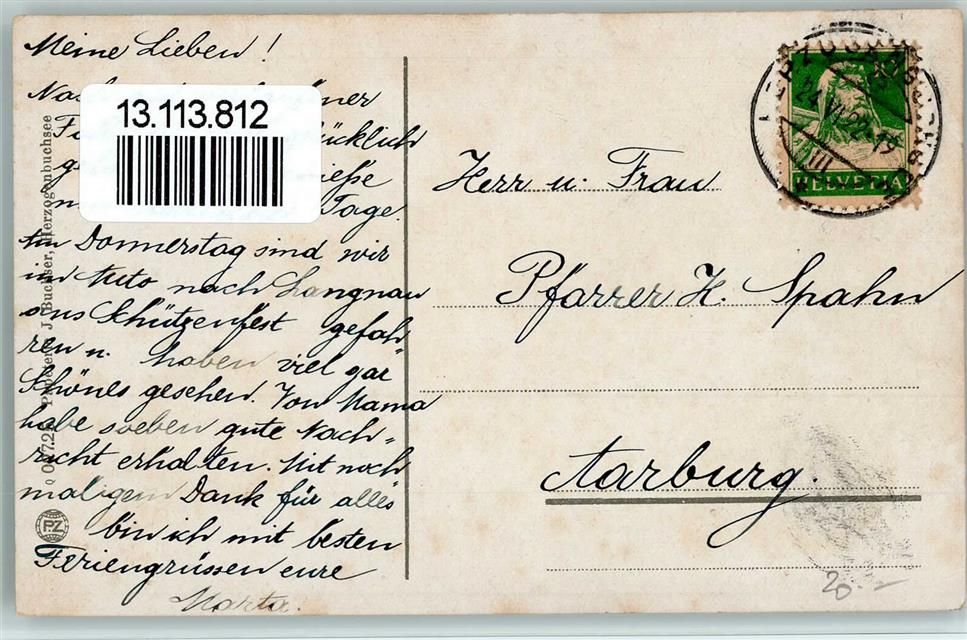 Meine Lieben!
13.113.812
ücklich
Tage.
Am Donnerstag sind wir
im Auto nach Langnau
ans Schützenfest gefah
ren u. haben viel gar
Schönes gesehen. Von Mama
habe soeben gute Nach-
richt erhalten. Mit noch
maligem Dank für alles
bin ich mit besten
Feriengrüssen eure
Marta.
Papeterie J. Buchser, Herzogenbuchsee
PZ
Herr u. Frau
Pfarrer H. Spahn
Aarburg.
HELVETIA
10
20.-